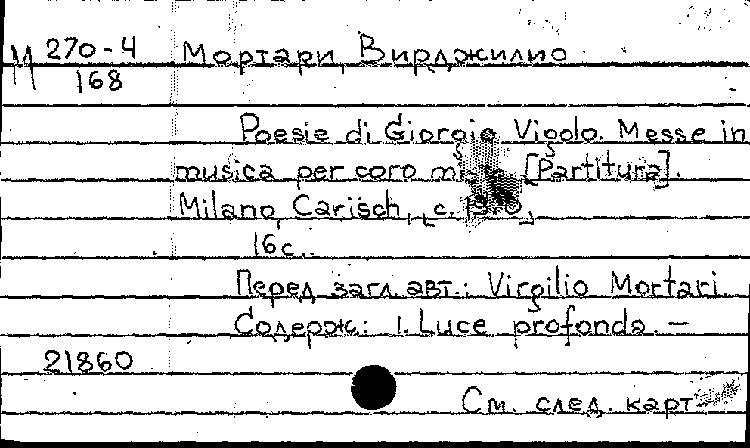 М 270-4 Мортари, Вирджилио
168
Poesie di Giorgio Vigolo. Messe in
musica per coro [Partitura].
Milano, Carisch,
16 с.
Перед загл. авт.: Virgilio Mortari.
Содерж: 1. Luce profonda. —
21860
См. след. карт